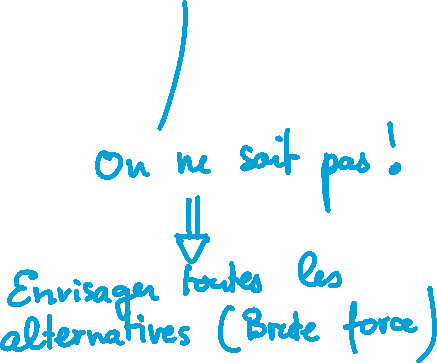 On ne sait pas !
Envisager toutes les
alternatives (Brute force)